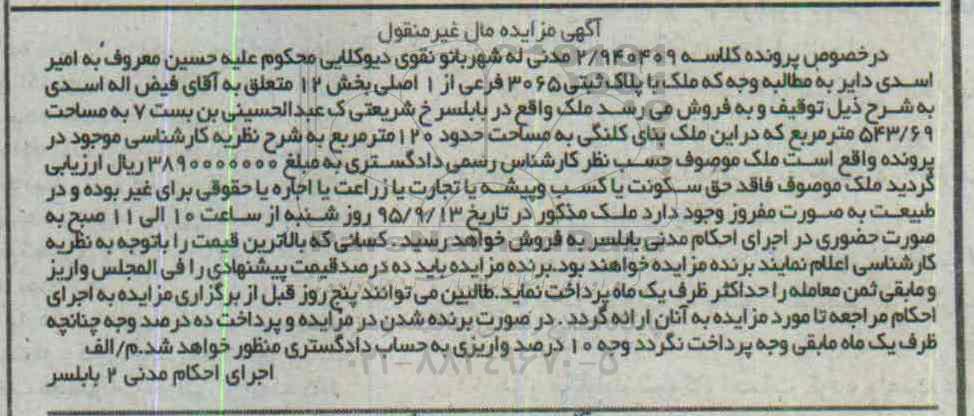 آگهی مزایده مال غیرمنقول
درخصوص پرونده کلاسه ۲/۹۴۰۴۰۹ مدنی له شهربانو نقوی دیوکلایی محکوم علیه حسین معروف به امیر
اسدی دایر به مطالبه وجه که ملک با پلاک ثبتی ۳۰۶۵ فرعی از ۱ اصلی بخش ۱۲ متعلق به آقای فیض اله اسدی
به شرح ذیل توقیف و به فروش می رسد ملک واقع در بابلسر خ شریعتی ک عبدالحسینی بن بست ۷ به مساحت
۵۴۳/۶۹ مترمربع که دراین ملک بنای کلنگی به مساحت حدود ۱۲۰مترمربع به شرح نظریه کارشناسی موجود در
پرونده واقع است ملک موصوف حسب نظر کارشناس رسمی دادگستری به مبلغ ۳۸۹۰۰۰۰۰۰۰ ریال ارزیابی
گردید ملک موصوف فاقد حق سکونت یا کسب وپیشه یا تجارت یا زراعت یا اجاره یا حقوقی برای غیر بوده و در
طبیعت به صورت مفروز وجود دارد ملک مذکور در تاریخ ۹۵/۹/۱۳ روز شنبه از ساعت ۱۰ الی ۱۱ صبح به
صورت حضوری در اجرای احکام مدنی بابلسر به فروش خواهد رسید. کسانی که بالاترین قیمت را باتوجه به نظریه
کارشناسی اعلام نمایند برنده مزایده خواهند بود.برنده مزایده باید ده درصدقیمت پیشنهادی را فی المجلس واریز
و مابقی ثمن معامله را حداکثر ظرف یک ماه پرداخت نماید.طالبین می توانند پنج روز قبل از برگزاری مزایده به اجرای
احکام مراجعه تا مورد مزایده به آنان ارائه گردد . در صورت برنده شدن در مزایده و پرداخت ده درصد وجه چنانچه
ظرف یک ماه مابقی وجه پرداخت نگردد وجه ۱۰ درصد واریزی به حساب دادگستری منظور خواهد شد.م/الف
اجرای احکام مدنی ۲ بابلسر
۰۲۱-۸۸۳۴۹۶۷۰-۵